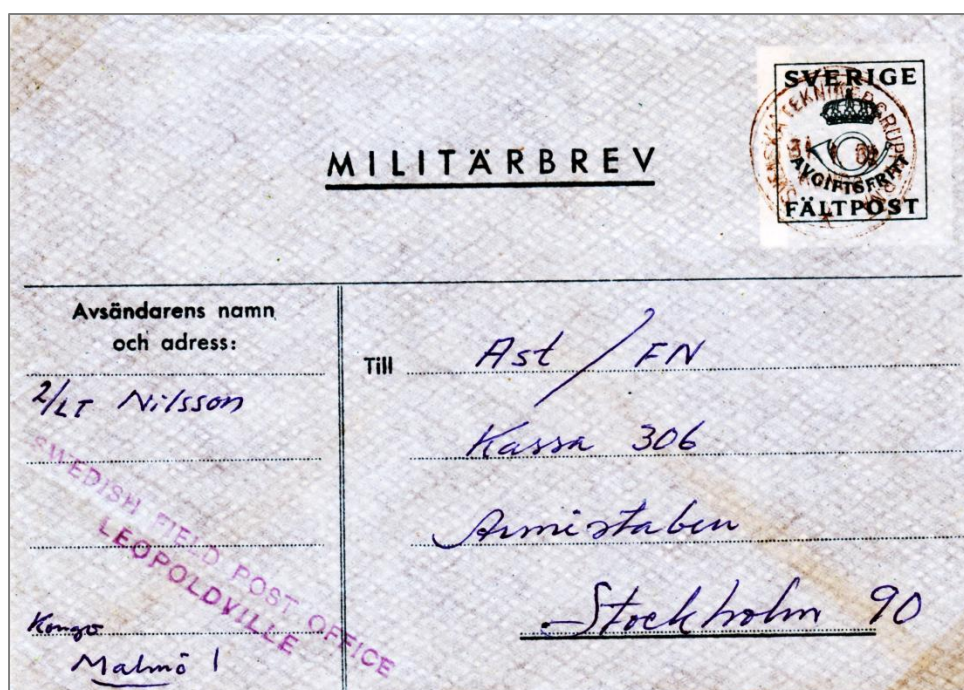 SVERIGE
AVGIFTSFRITT
FÄLTPOST
SVENSKA TEKNIKER
MILITÄRBREV
Avsändarens namn
och adress:
2/LT Nilsson
SWEDISH FIELD POST OFFICE
LEOPOLDVILLE
Kongo
Malmö 1
Till Ast / FN
Kassa 306
Armistaben
Stockholm 90